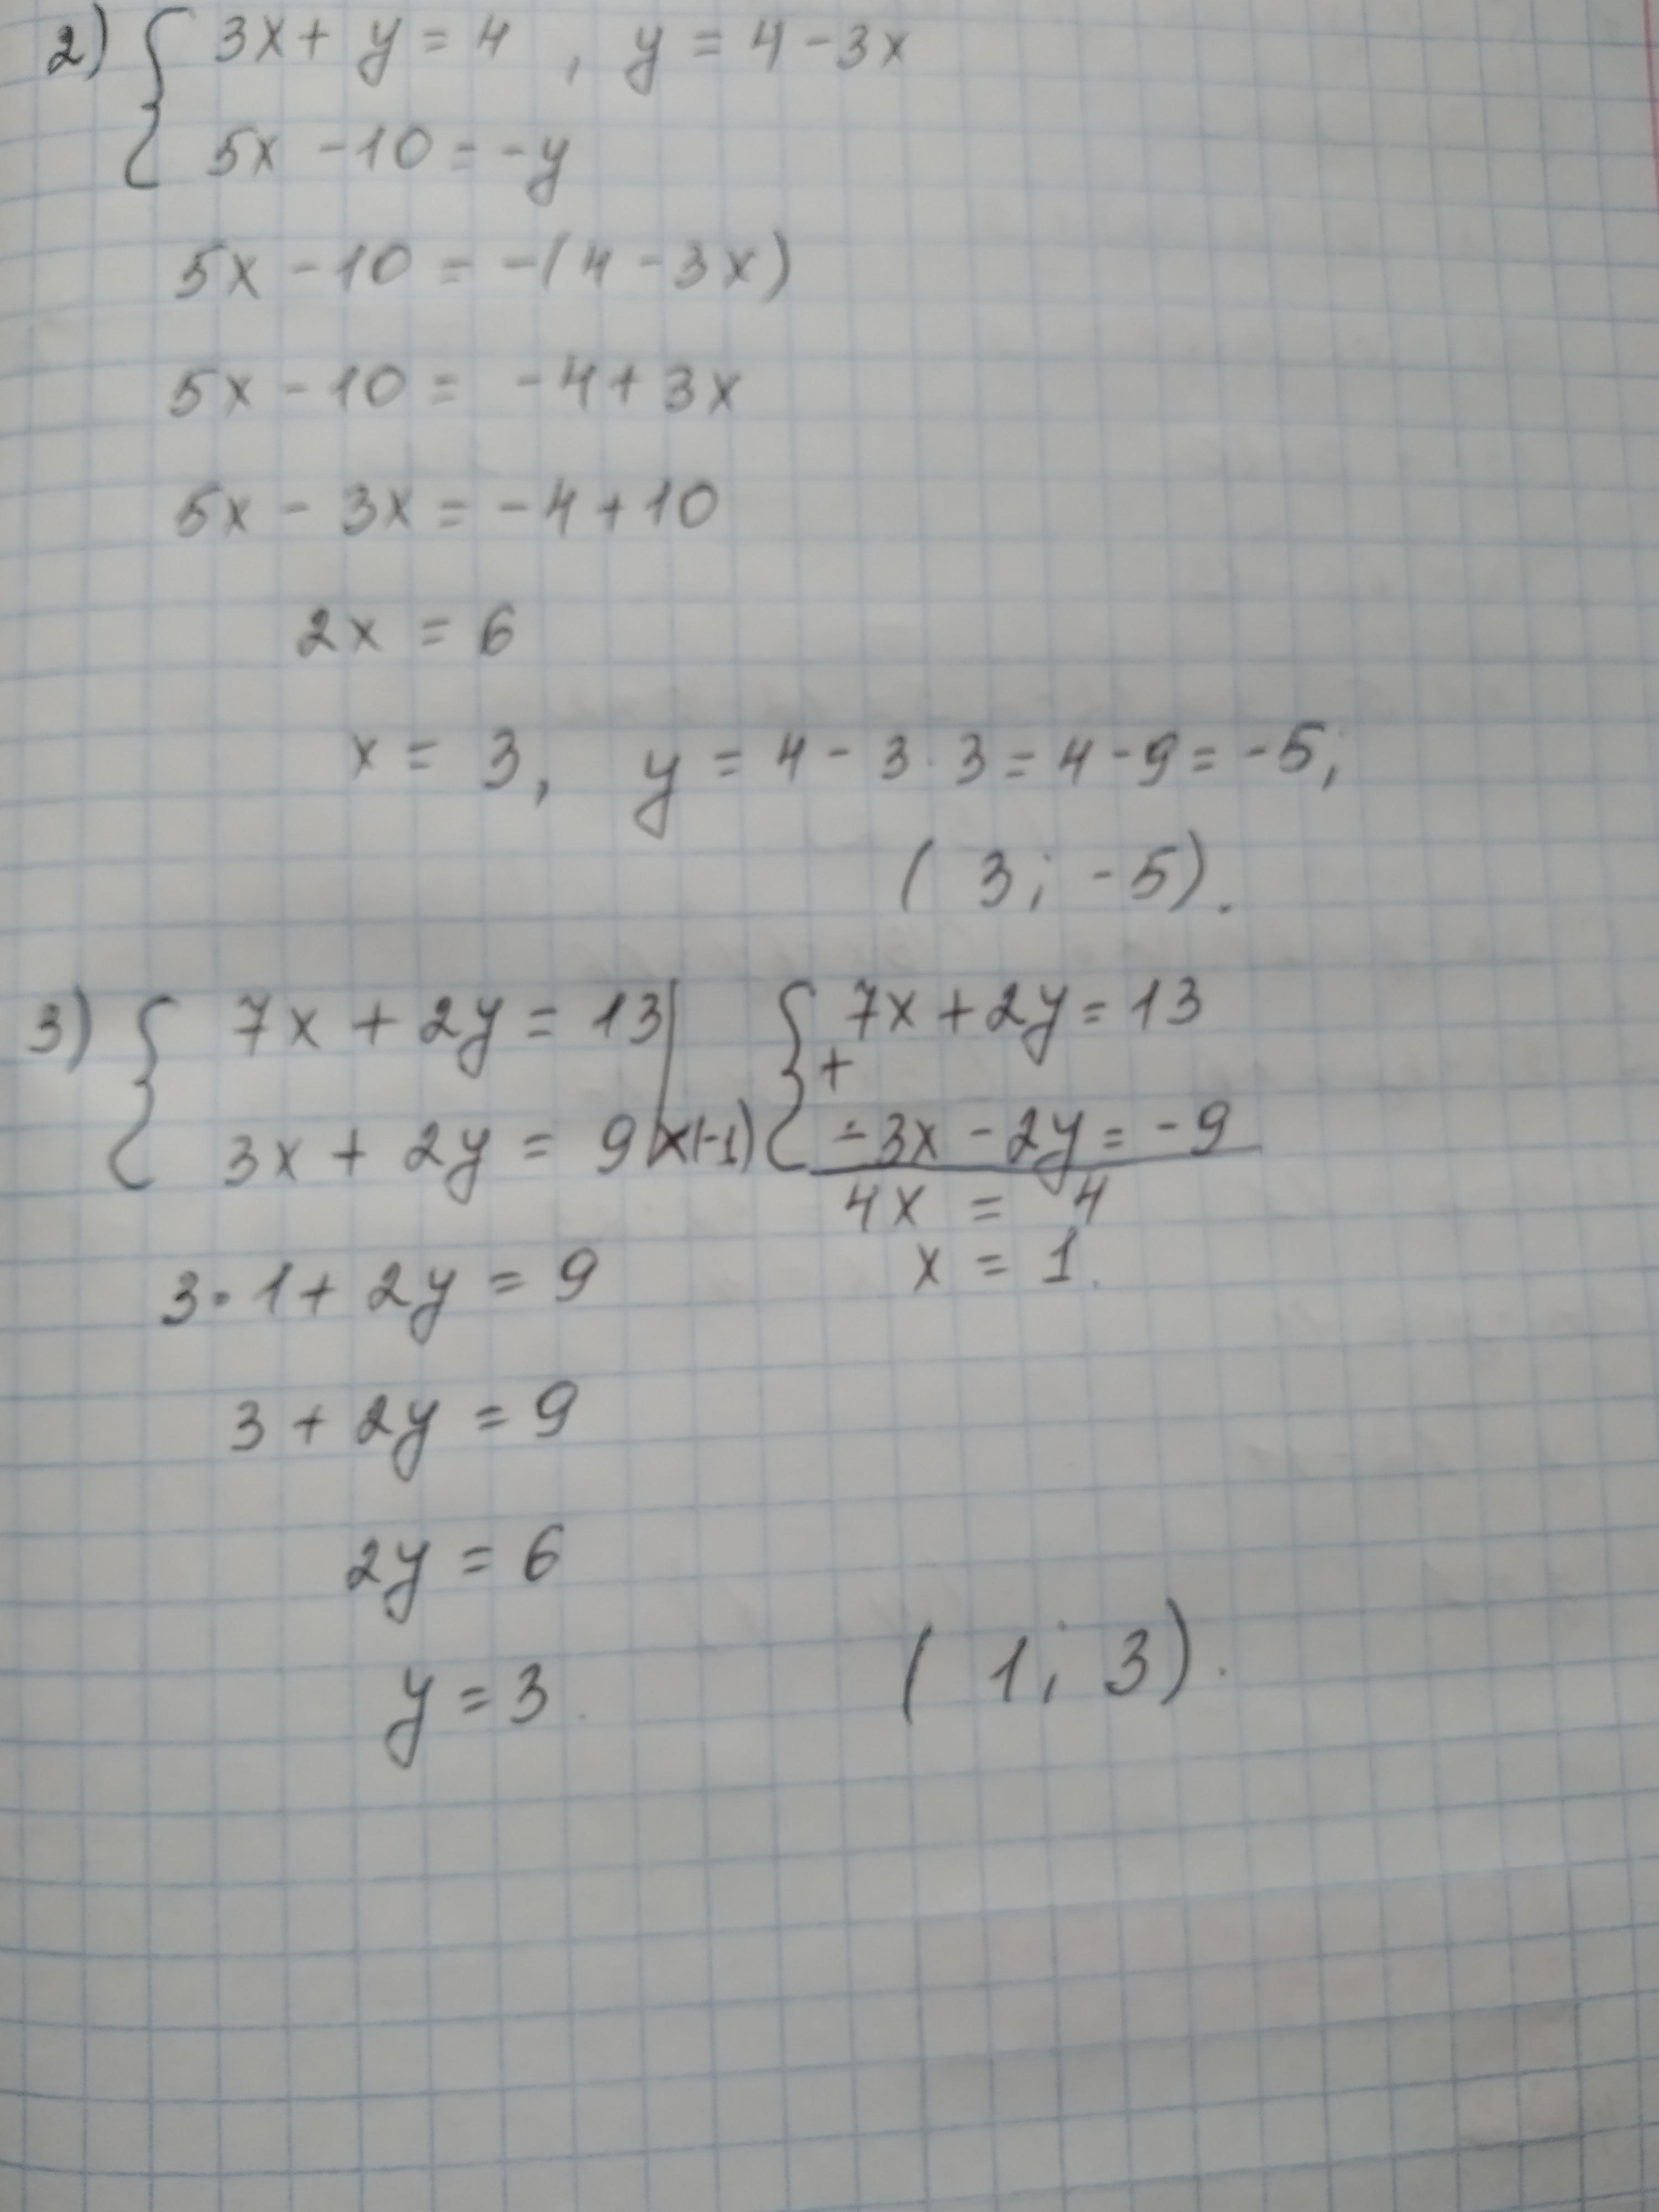 2) { 3x + y = 4 , y = 4 - 3x
5x - 10 = -y
5x - 10 = -(4 - 3x)
5x - 10 = -4 + 3x
5x - 3x = -4 + 10
2x = 6
x = 3, y = 4 - 3·3 = 4 - 9 = -5;
(3; -5).
3) { 7x + 2y = 13 | { 7x + 2y = 13
+
3x + 2y = 9 |×(-1) -3x - 2y = -9
4x = 4
3·1 + 2y = 9 x = 1.
3 + 2y = 9
2y = 6
y = 3. (1; 3).